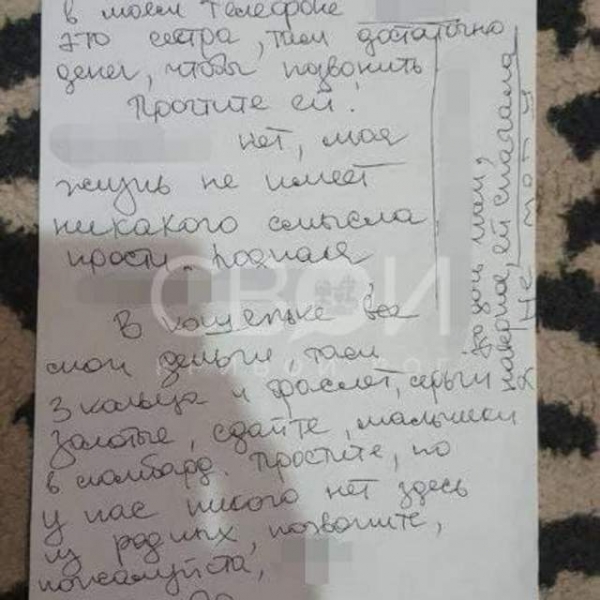 в моём телефоне
это сестра, там достаточно
денег, чтобы позвонить
Простите ей.
нет, моя
жизнь не имеет
никакого смысла
прости, родная,
В кошельке все
мои деньги, там
3 кольца и браслет, серьги
золотые, сдайте, мальчики
в ломбард. Простите, но
у нас никого нет здесь
из родных, позвоните,
пожалуйста,
наверное, ей
не могу
СВОИ
КРИВОЙ РОГ